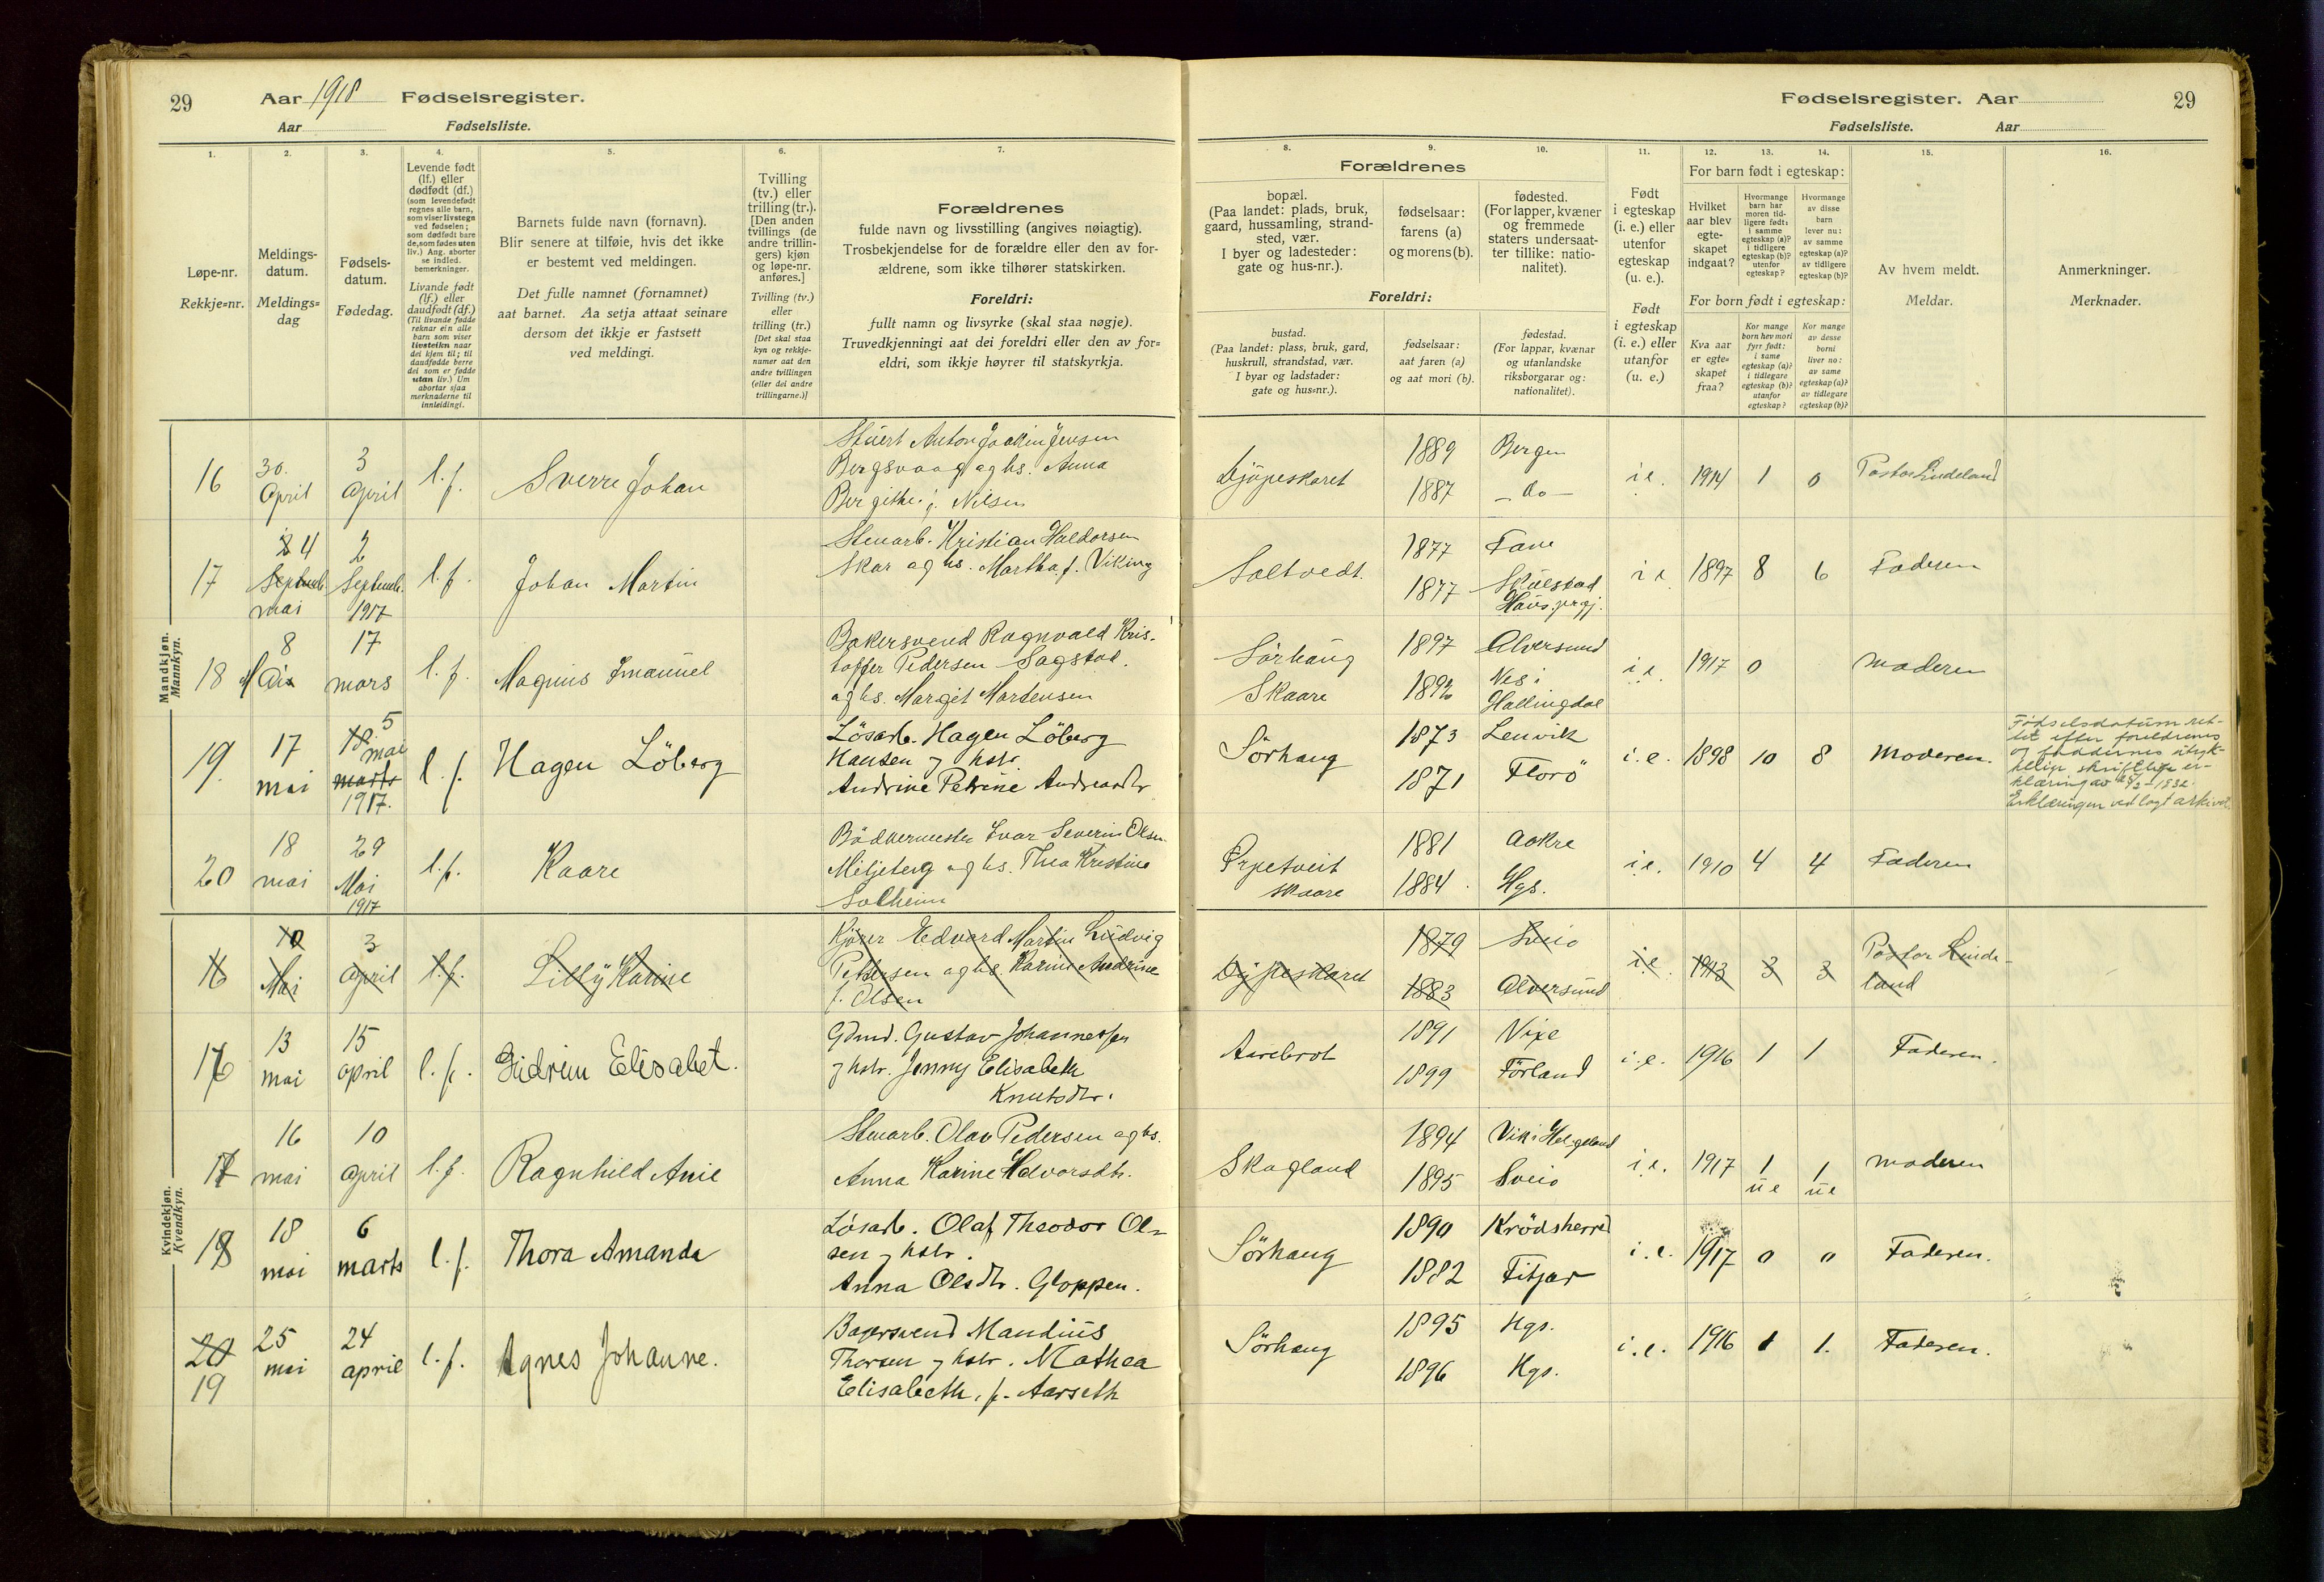 29 Aar 1918 Fødselsregister.
Aar Fødselsliste.
Fødselsregister. Aar 29
Fødselsliste. Aar
1. 2. 3. 4. 5. 6. 7.
Løpe-nr.
Rekkje=nr.
Meldings-
datum.
Meldings=
dag
Fødsels-
datum.
Fødedag.
Levende født
(lf.) eller
dødfødt (df.)
(som levendefødt
regnes alle barn,
som viser livstegn
ved fødselen;
som dødfødt bare
de, som fødes uten
liv.) Ang. aborter
se indled.
bemerkninger.
Livande født
(lf.) eller
daudfødt (df.)
(Til livande fødde
reknar ein alle
barn som viser
livsteikn naar
dei kjem til; til
daudfødde berre
dei som er fødde
utan liv.) Um
abortar sjaa
merknaderne til
innleidingi.
Barnets fulde navn (fornavn).
Blir senere at tilføie, hvis det ikke
er bestemt ved meldingen.
Det fulle namnet (fornamnet)
aat barnet. Aa setja attaat seinare
dersom det ikkje er fastsett
ved meldingi.
Tvilling
(tv.) eller
trilling (tr.).
[Den anden
tvillings (de
andre trillin-
gers) kjøn
og løpe-nr.
anføres.]
Tvilling (tv.)
eller
trilling (tr.)
[Det skal staa
kyn og rekkje-
numer aat den
andre tvillingen
(eller dei andre
trillingarne.)]
Forældrenes
fulde navn og livsstilling (angives nøiagtig).
Trosbekjendelse for de forældre eller den av for-
ældrene, som ikke tilhører statskirken.
Foreldri:
fullt namn og livsyrke (skal staa nøgje).
Truvedkjenningi aat dei foreldri eller den av for=
eldri, som ikkje høyrer til statskyrkja.
8. 9. 10. 11. 12. 13. 14. 15. 16.
Forældrenes
bopæl.
(Paa landet: plads, bruk,
gaard, hussamling, strand-
sted, vær.
I byer og ladesteder:
gate og hus-nr.).
fødselsaar:
farens (a)
og morens (b).
fødested.
(For lapper, kvæner
og fremmede
staters undersaat-
ter tillike: natio-
nalitet).
Foreldri:
bustad.
(Paa landet: plass, bruk, gard,
huskrull, strandstad, vær.
I byar og ladstader:
gate og hus=nr.).
fødselsaar:
aat faren (a)
og aat mori (b).
fødestad.
(For lappar, kvænar
og utanlandske
riksborgarar og:
nationalitet).
Født
i egteskap
(i. e.) eller
utenfor
egteskap
(u. e.).
Født
i egteskap
(i. e.) eller
utanfor
(u. e.)
For barn født i egteskap:
Hvilket
aar blev
egte-
skapet
indgaat?
Hvormange
barn har
moren tid-
ligere født:
i samme
egteskap (a)?
i tidligere
egteskap (b)?
utenfor
egteskap?
Hvormange
av disse
barn
lever nu:
av samme
egteskap (a)?
av tidligere
egteskap (b)?
For born født i egteskap:
Kva aar
er egte=
skapet
fraa?
Kor mange
born hev mori
fyrr født:
i same
egteskap (a)?
i tidlegare
egteskap (b)?
utanfor
egteskap?
Kor mange
av desse
borni
liver no:
av same
egteskap (a)?
av tidlegare
egteskap (b)?
Av hvem meldt.
Meldar.
Anmerkninger.
Merknader.
Mandkjøn.
Mannkyn.
16 30. April 3 April l.f. Sverre Johan
Stuert Anton Joakim Jensen
Bergsvaag og hs. Anna
Bergithe f. Nilsen
Djupeskaret 1889 Bergen
1887 - do -
i.e. 1914 1 0 Pastor Lindeland
17 4 Septemb. mai 2 Septemb. 1917 l.f. Johan Martin
Stuarb. Kristian Haldorsen
Skar og hs. Martha f. Viking
Saltvedt. 1877 Fane
1877 Skulstad
Haus prgj.
i.e. 1897 8 6 Faderen
18 8 Mai 17 mars l.f. Magnus Imanuel
Bakersvend Ragnvald Kris-
toffer Pedersen Sagstad.
og hs. Margit Martensen
Sørhaug
Skaare
1897 Alversund
1892 Nes i
Hallingdal
i.e. 1917 0 moderen
19. 17 mai 18 5 mai marts 1917. l.f. Hagen Löberg
Lösarb. Hagen Löberg
Hansen og hstr.
Andrine Petrine Andreasdtr
Sörhaug 1873 Lenvik
1871 Florö
i.e. 1898 10 8 Moderen.
Fødselsdatum ret-
tet efter foreldrenes
og faddernes utryk-
kelige skriftlige er-
klæring av
Erklæringen vedlagt arkivet.
20 18 mai 29 Mai 1917 l.f. Kaare
Bödkermester Ivar Severin Olsen
Miljeteig og hs. Thea Kristine
Solheim
Ørpetveit
skaare
1881 Aakre
1884. Hgs.
i.e. 1910 4 4 Faderen
Kvindekjøn.
Kvendkyn.
16 10 Mai 3 April l.f. Lilly Karine
Kjører Edvard Martin Ludvig
Pettersen og hs. Karine Andrine
f. Olsen
Djupeskaret 1879 Sveio
1883 Alversund
i.e. 1913 3 3 Pastor Linde-
land
16 13 mai 15 april l.f. Gudrun Elisabet.
Gdmd. Gustav Johannessen
og hstr. Jenny Elisabeth
Knutsdtr.
Aarebrot 1891 Vixe
1899 Förland
i.e. 1916 1 1 Faderen.
17 16 mai 10 April l.f. Ragnhild Anie
Stuarb. Olav Pedersen og hs.
Anna Karine Halvorsdtr.
Skogland 1894 Vik i Helgeland
1895 Sveio
i.e. 1917 1 ue 1 ue moderen
18 18 mai 6 marts l.f. Thora Amanda
Lösarb. Olaf Theodor Ol-
sen og hstr.
Anna Olsdtr. Gloppen.
Sörhaug 1890 Krödsherred
1882 Fitjar
i.e. 1917 0 0 Faderen.
20 19 25 mai 24 april l.f. Agnes Johanne.
Bagersvend Mandius
Thorsen og hstr. Mathea
Elisabeth, f. Aarseth
Sörhaug 1895 Hgs.
1896 Hgs.
i.e. 1916 1 1. Faderen.